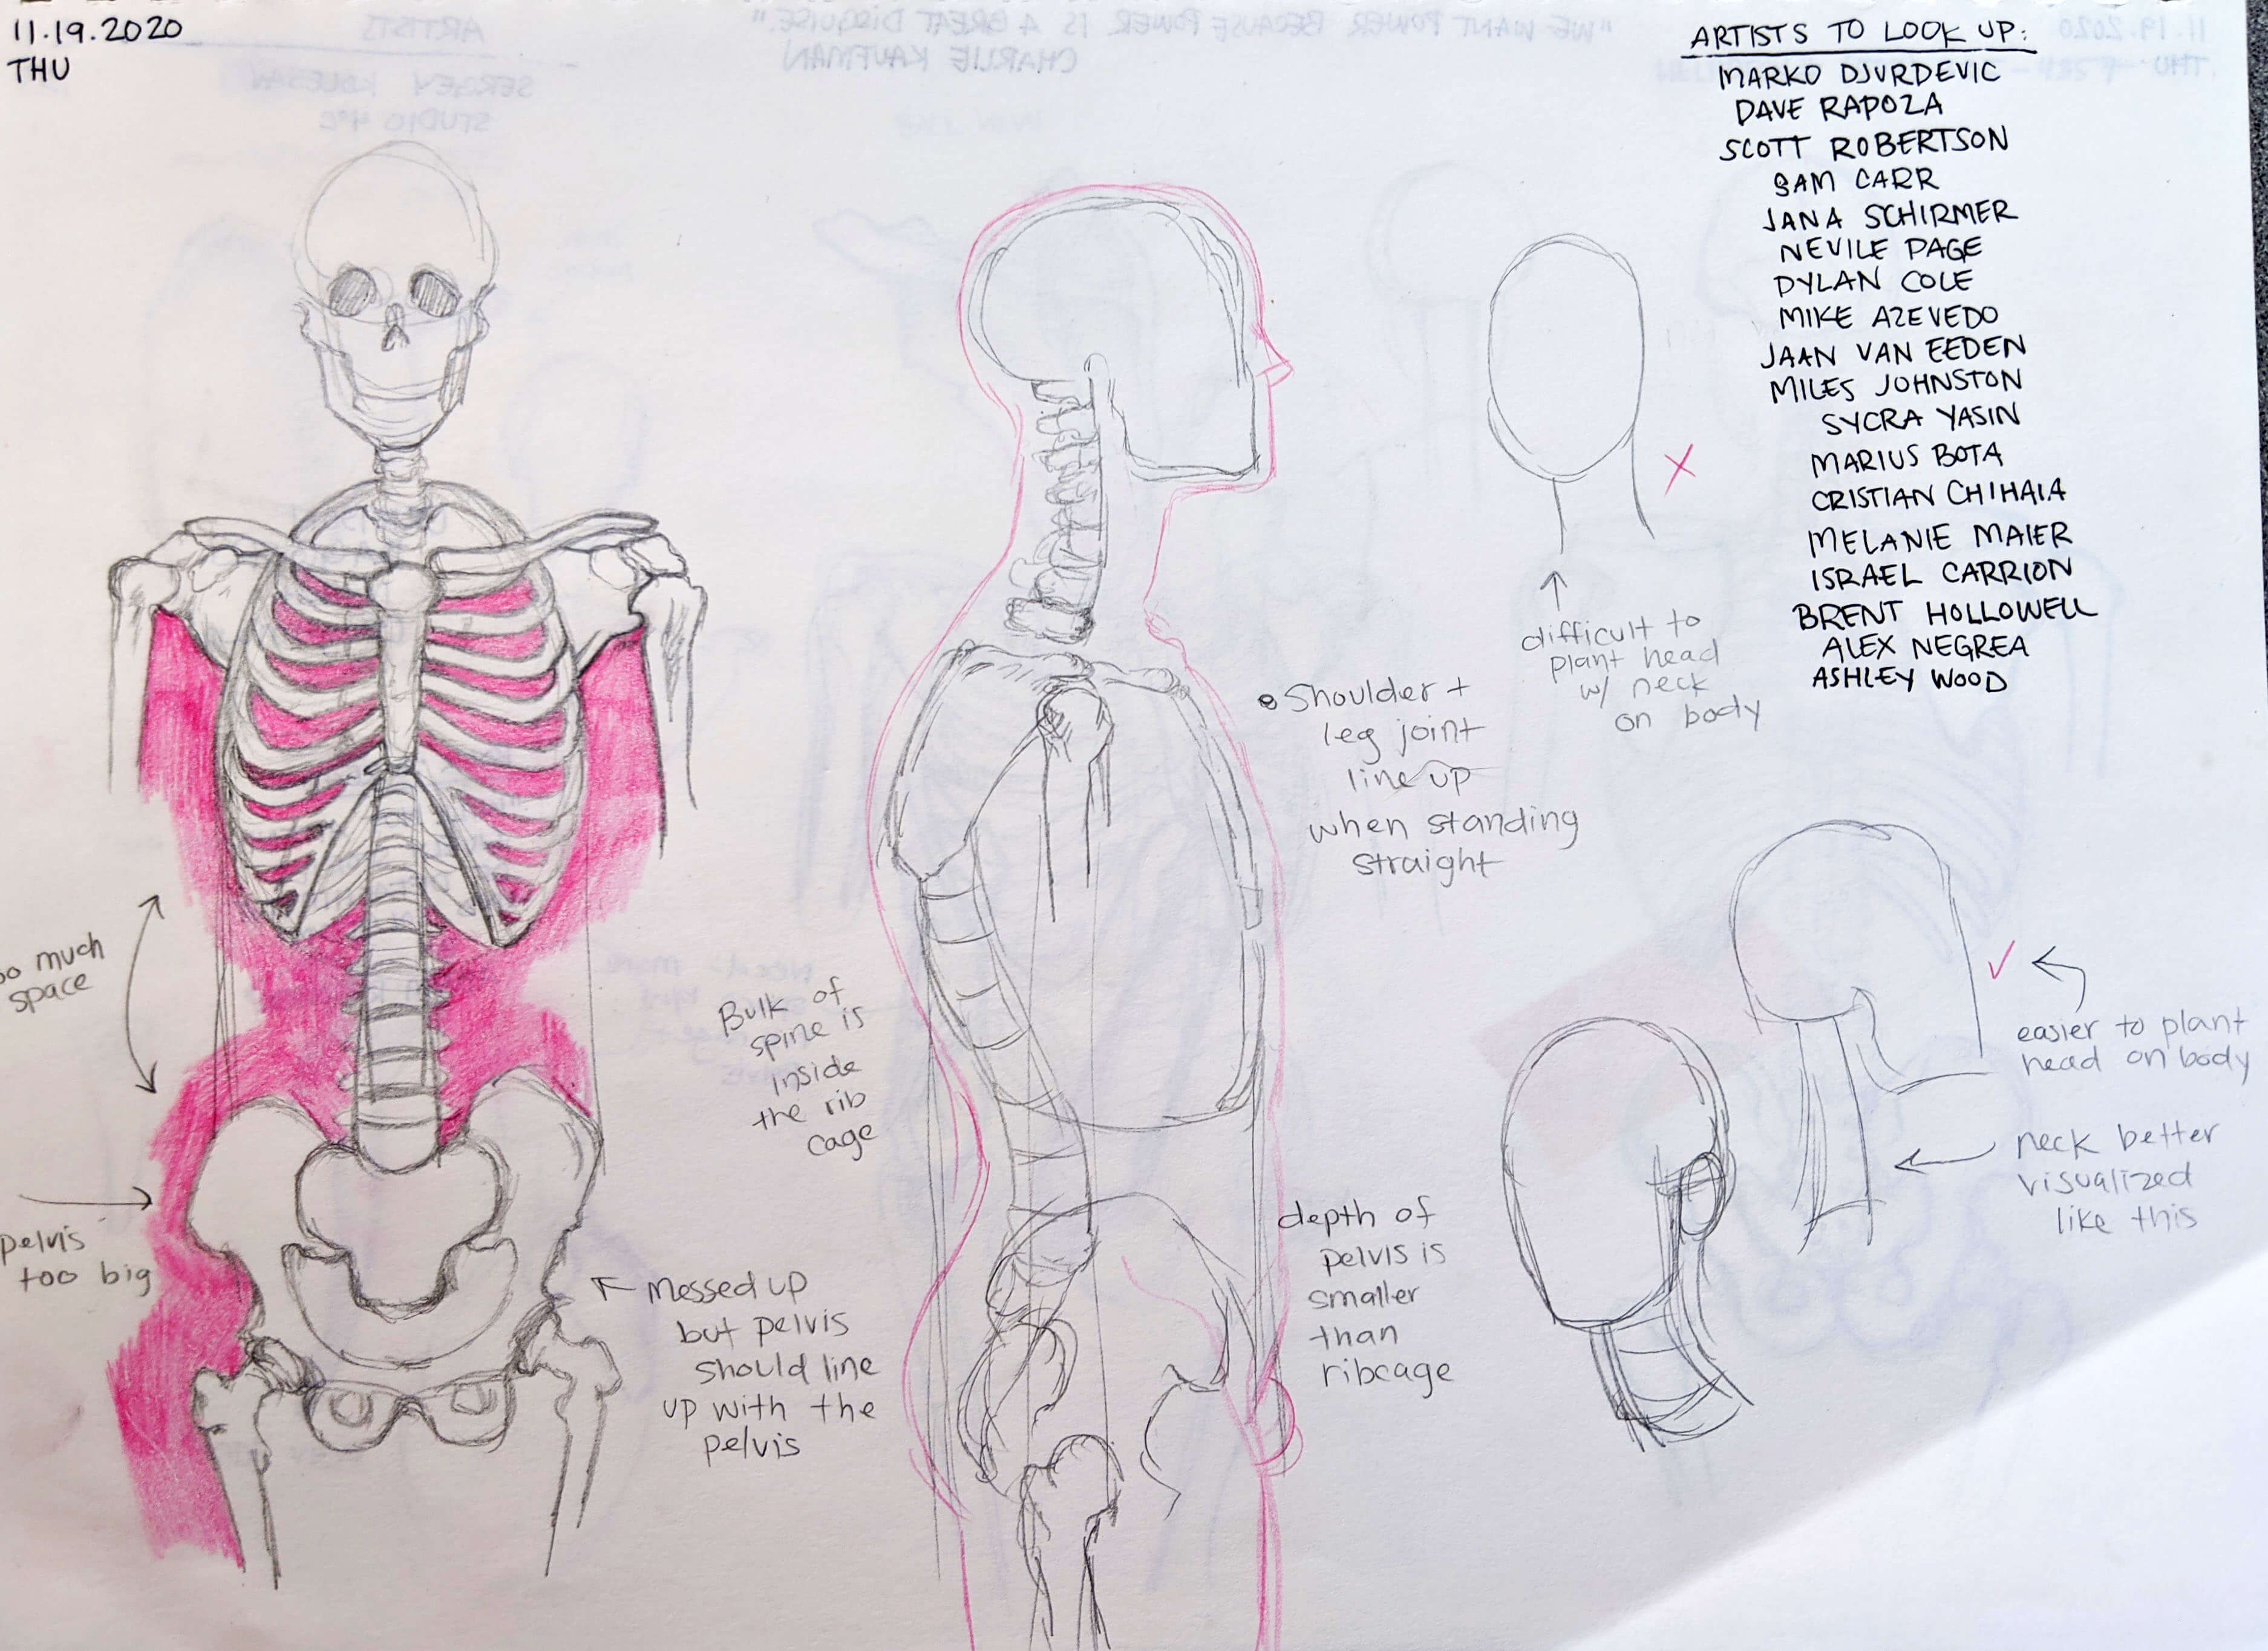 11.19.2020
THU
ARTISTS TO LOOK UP:
MARKO DJURDEVIC
DAVE RAPOZA
SCOTT ROBERTSON
SAM CARR
JANA SCHIRMER
NEVILE PAGE
DYLAN COLE
MIKE AZEVEDO
JAAN VAN EEDEN
MILES JOHNSTON
SYCRA YASIN
MARIUS BOTA
CRISTIAN CHIHAIA
MELANIE MAIER
ISRAEL CARRION
BRENT HOLLOWELL
ALEX NEGREA
ASHLEY WOOD
difficult to
plant head
w/ neck
on body
Shoulder +
leg joint
line up
when standing
straight
oo much
space
Bulk of
spine is
inside
the rib
cage
easier to plant
head on body
neck better
visualized
like this
pelvis
too big
Messed up
but pelvis
should line
up with the
pelvis
depth of
pelvis is
smaller
than
ribcage